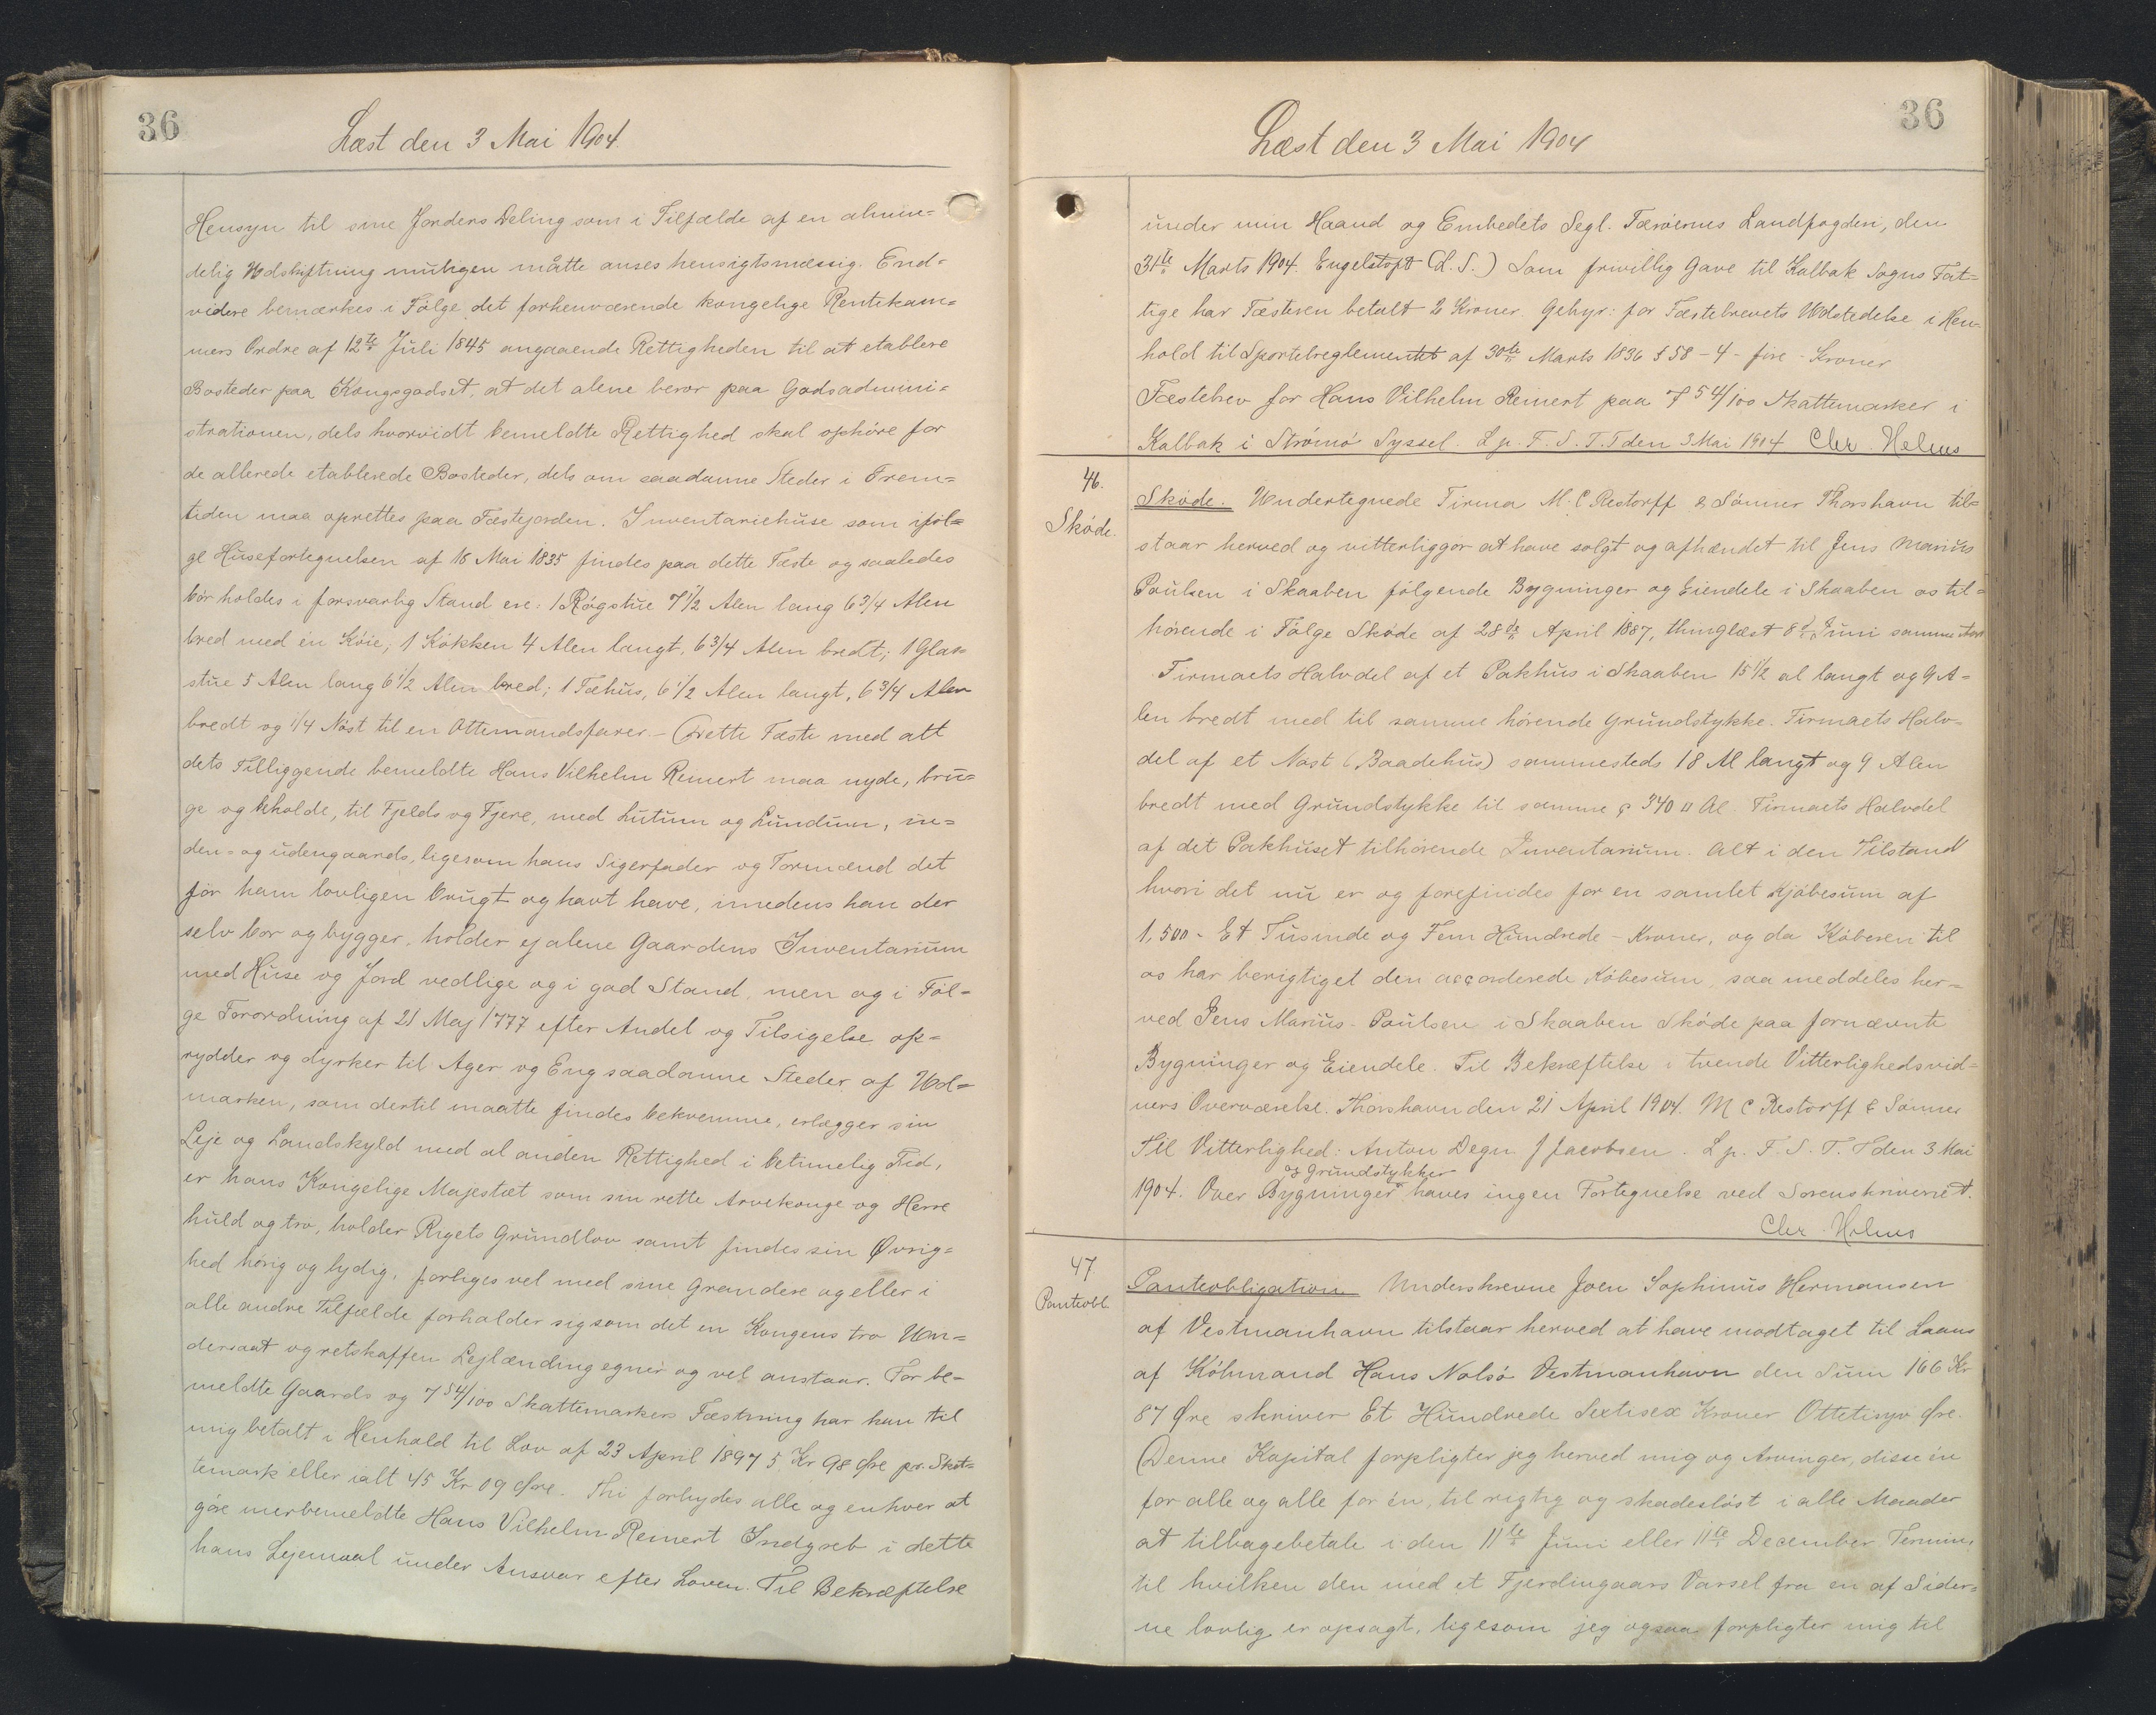 36
Læst den 3 Mai 1904.
Hensyn til sine Jorders Deling som i Tilfælde af en almin=
delig Udskiftning muligen måtte anses hensigtsmæssig. End=
videre bemærkes i Følge det forhenværende kongelige Rentekam=
mers Ordre af 12te Juli 1845 angaaende Rettigheden til at etablere
Bosteder paa Kongsgodset, at det alene beror paa Godsadmini=
strationen, dels hvorvidt bemeldte Rettighed skal ophöre for
de allerede etablerede Bosteder, dels om saadanne Steder i Frem=
tiden maa oprettes paa Fæstejorden. Inventariehuse som iföl=
ge Husefortegnelsen af 18 Mai 1835 findes paa dette Fæste og saaledes
bör holdes i forsvarlig Stand ere: 1 Rögstue 7 1/2 Alen lang 6 3/4 Alen
bred med én Köie, 1 Kökken 4 Alen langt, 6 3/4 Alen bredt; 1 Glas
stue 5 Alen lang 6 1/2 Alen bred; 1 Fæhus, 6 1/2 Alen langt, 6 3/4 Alen
bredt og 1/4 Nöst til en Ottemandsfarer. – Dette Fæste med alt
dets Tilliggende bemeldte Hans Vilhelm Reinert maa nyde, bru=
ge og beholde, til Fjelds og Fjere, med Lutum og Lundum, in=
den= og udengaards, ligesom hans Sigerfader og Formænd det
för ham lovligen brugt og havt have, imedens han der
selv bor og bygger, holder ej alene Gaardens Inventarium
med Huse og Jord vedlige og i god Stand, men og i Föl=
ge Forordning af 21 Maj 1777 efter Andel og Tilsigelse op=
rydder og dyrker til Ager og Eng saadanne Steder af Ud=
marken, som dertil maatte findes bekvemme, erlægger sin
Leje og Landskyld med al anden Rettighed i betimelig Tid,
er hans Kongelige Majestæt som sin rette Arvekonge og Herre
huld og tro, holder Rigets Grundlov samt findes sin Øvrig=
hed hörig og lydig, forliges vel med sine Grandere og eller i
alle andre Tilfælde forholder sig som det en Kongens tro Un=
dersaat og retskaffen Lejlænding egner og vel anstaar. For be=
meldte Gaards og 7 54/100 Skattemarkers Fæstning har han til
mig betalt i Henhold til Lov af 23 April 1897 5 Kr 98 Øre pr. Skat=
temark eller ialt 45 Kr 09 Øre. Thi forbydes alle og enhver at
göre merbemeldte Hans Vilhelm Reinert Indgreb i dette
hans Lejemaal under Ansvar efter Loven. Til Bekræftelse
36
Læst den 3 Mai 1904
under min Haand og Embedets Segl. Færöernes Landfogderi, den
31te Marts 1904. Engelstoft (L. S.) Som frivillig Gave til Kalbak Sogns Fat=
tige har Fæsteren betalt 2 Kroner. Gebyr: for Fæstebrevets Udstedelse i Hen=
hold til Sportelreglementet af 30te Marts 1836 § 58 – 4 – fire – Kroner
Fæstebrev for Hans Vilhelm Reinert paa 7 54/100 Skattemarker i
Kalbak i Strömö Syssel. L p. F. S. T. T den 3 Mai 1904 Chr. Helms
46.
Sköde.
Sköde. Undertegnede Firma M. C Restorff & Sönner Thorshavn til=
staar herved og vitterliggör at have solgt og afhændet til Jens Marius
Poulsen i Skaaben fölgende Bygninger og Eiendele i Skaaben os til=
hörende i Fölge Sköde af 28de April 1887, thinglæst 8de Juni samme Aar
Firmaets Halvdel af et Pakhus i Skaaben 15 1/2 al langt og 9 A=
len bredt med til samme hörende Grundstykke. Firmaets Halv=
del af et Nöst (Baadehus) sammesteds 18 Al langt og 9 Alen
bredt med Grundstykke til samme ç 340 □ Al. Firmaets Halvdel
af det Pakhuset tilhörende Inventarium. Alt i den Tilstand
hvori det nu er og forefindes for en samlet Kjöbesum af
1,500 – Et Tusinde og Fem Hundrede – Kroner, og da Köberen til
os har berigtiget den accorderede Köbesum, saa meddeles her=
ved Jens Marius Poulsen i Skaaben Sköde paa fornævnte
Bygninger og Eiendele. Til Bekræftelse i tvende Vitterlighedsvid=
ners Overværelse. Thorshavn den 21 April 1904. M C Restorff & Sönner
Til Vitterlighed: Anton Degn J Jacobsen. L p. F. S. T. T den 3 Mai
og Grundstykker
1904. Over Bygninger haves ingen Fortegnelse ved Sorenskriveriet.
Chr. Helms
47
Panteobl.
Panteobligation Underskrevne Joen Sophinus Hermansen
af Vestmanhavn tilstaar herved at have modtaget til Laans
af Köbmand Hans Nolsö Vestmanhavn den Sum 166 Kr
87 Øre skriver Et Hundrede Sextisex Kroner Ottetisyv Øre.
Denne Kapital forpligter jeg herved mig og Arvinger, disse én
for alle og alle for én, til rigtig og skadeslöst i alle Maader
at tilbagebetale i den 11te Juni eller 11te December Termin,
til hvilken den med et Fjerdingaars Varsel fra en af Sider=
ne lovlig er opsagt, ligesom jeg ogsaa forpligter mig til